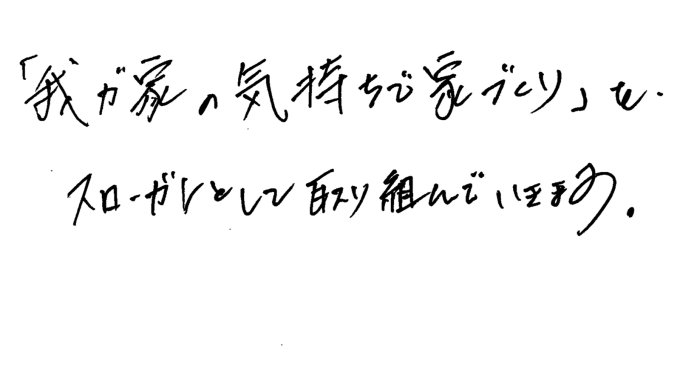 「我が家の気持ちで家づくり」を
スローガンとして取り組んでいます。